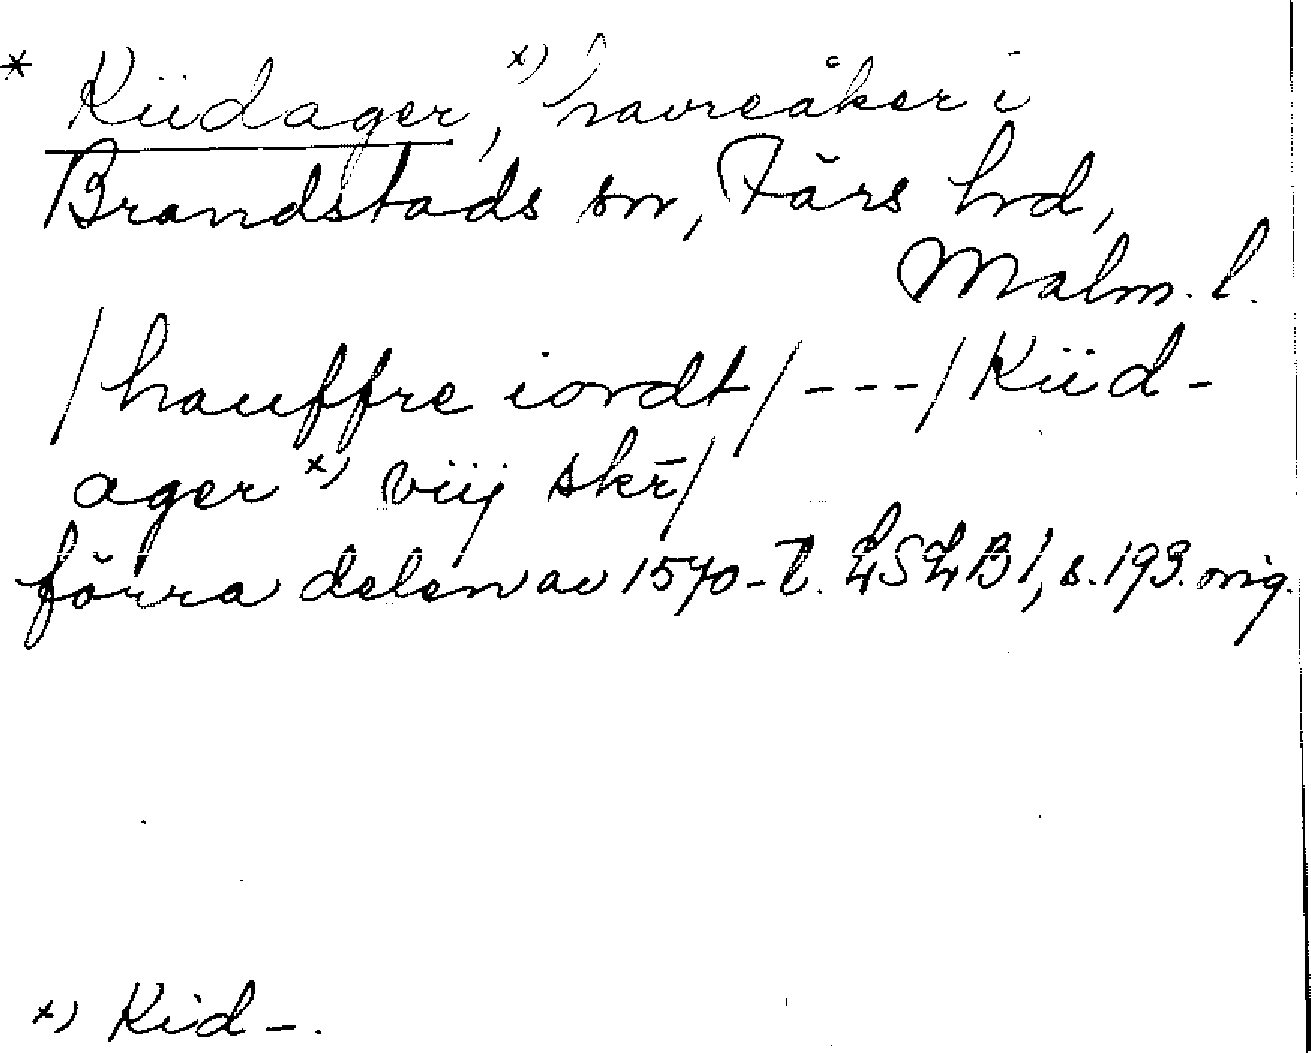 * Kiidager, x) havreåker i
Brandstads sn, Färs hd,
Malm. l.
/hauffre iordt/---/Kiid-
ager x) viij skr̄/
förra delen av 1570-t. LSLB1, s. 193. orig.
x) Kid-.